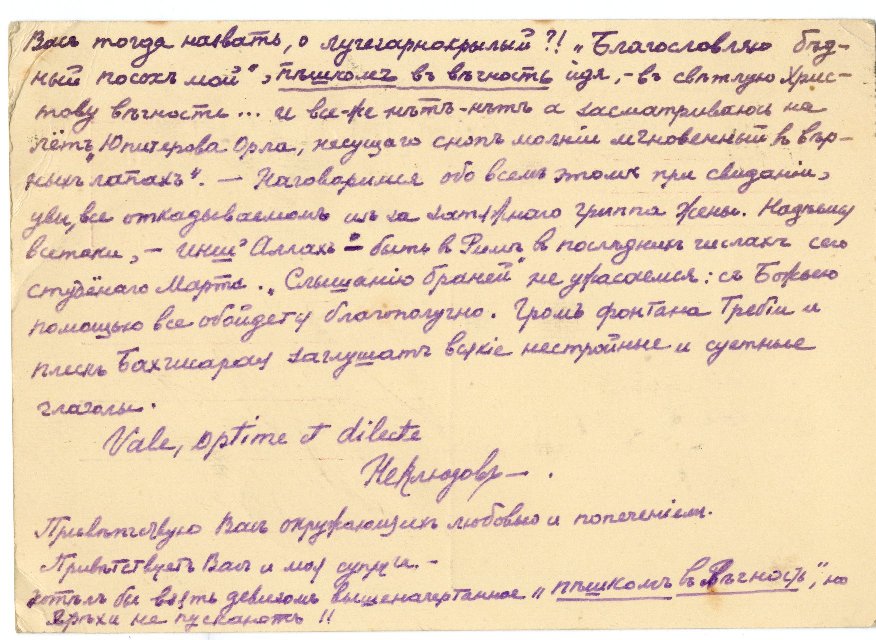 Васъ тогда назвать, о лучезарнокрылый?! „Благословляю бѣд-
ный посохъ мой", пѣшкомъ въ вѣчность идя, - въ свѣтлую Хрис-
тову вѣчность... и все-же нѣтъ-нѣтъ а засматриваюсь на
лётъ „Юпитерова Орла, несущаго снопъ молнiи мгновенный въ вѣр-
ныхъ лапахъ". — Наговоримся обо всемъ этомъ при свиданiи,
увы, все откадываемомъ изъ за затяжнаго гриппа жены. Надѣюсь
всетаки, — инш' Аллахъ — быть въ Римѣ въ послѣднихъ числахъ сего
студёнаго Марта. „Слышанiю браней" не ужасаемся: съ Божьею
помощью все обойдется благополучно. Громъ фонтана Требiи и
плескъ Бахчисарая заглушатъ всякiе нестройные и суетные
глаголы.
Vale, optime et dilecte
Неклюдовъ — .
Привѣтствую Васъ окружающихъ любовью и попеченiемъ.
Привѣтствуетъ Васъ и моя супруга. -
Хотѣлъ бы взять девизомъ вышеначертанное „пѣшкомъ въ Вѣчность", но
грѣхи не пускаютъ!!